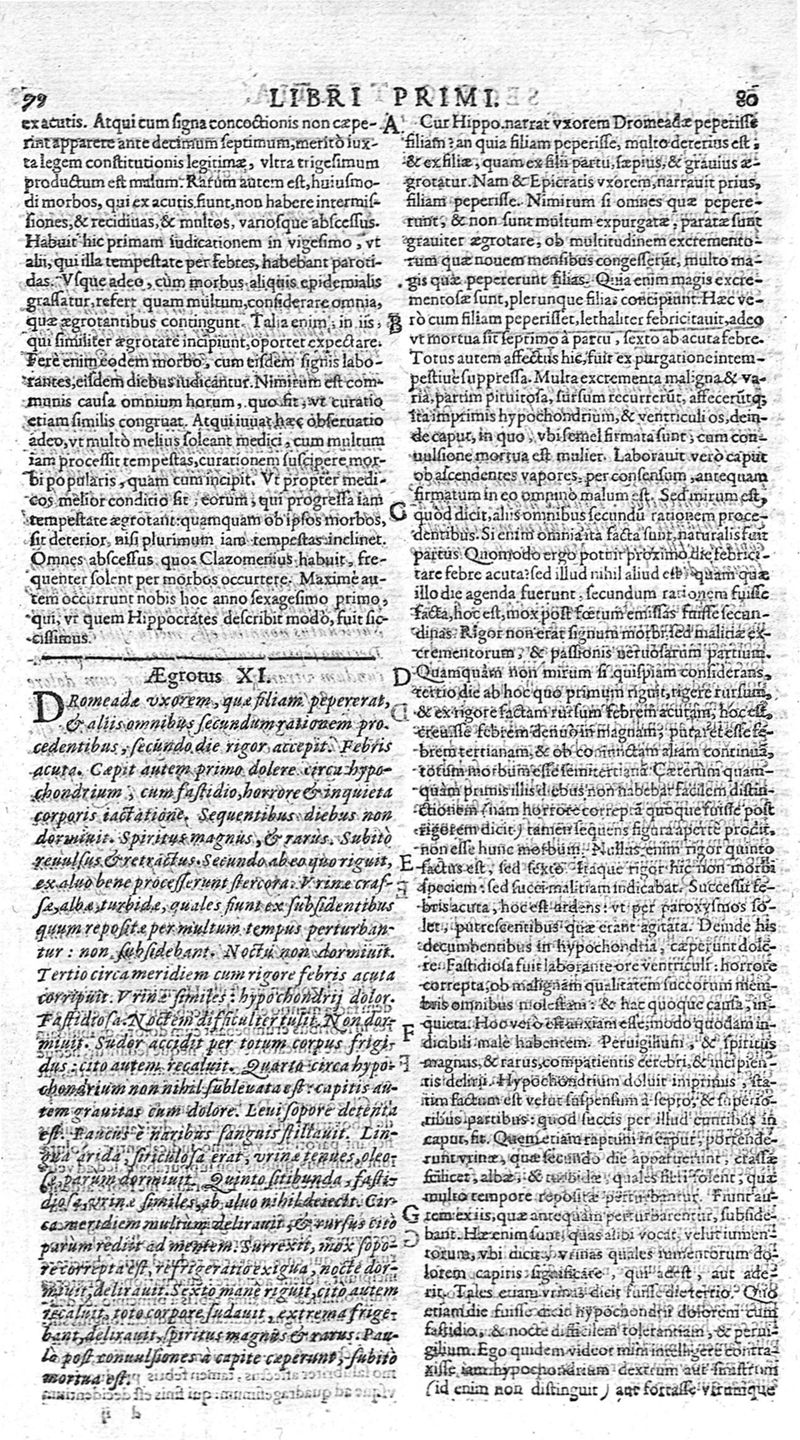 79 LIBRI PRIMI. 80
ex acutis. Atqui cum signa concoctionis non cœpe-
rint apparere ante decimum septimum, meritò iux-
ta legem constitutionis legitimæ, vltra trigesimum
productum est malum. Rarum autem est, huiusmo-
di morbos, qui ex acutis fiunt, non habere intermis-
siones, & recidiuas, & multos, variosque abscessus.
Habuit hic primam iudicationem in vigesimo, vt
alij, qui illa tempestate per febres, habebant paroti-
das. Vsque adeo, cùm morbus aliquis epidemialis
grassatur, refert quam multum, considerare omnia,
quæ ægrotantibus contingunt. Talia enim, in iis,
qui similiter ægrotare incipiunt, oportet expectare.
Ferè enim eodem morbo, cum eisdem signis labo-
rantes, eisdem diebus iudicantur. Nimirum est com-
munis causa omnium horum, quo fit, vt curatio
etiam similis congruat. Atqui iuuat hæc obseruatio
adeo, vt multò melius soleant medici, cum multum
iam processit tempestas, curationem suscipere mor-
bi popularis, quam cum incipit. Vt propter medi-
cos melior conditio sit, eorum, qui progressa iam
tempestate ægrotant: quamquam ob ipsos morbos,
sit deterior, nisi plurimum iam tempestas inclinet.
Omnes abscessus quos Clazomenius habuit, fre-
quenter solent per morbos occurrere. Maximè au-
tem occurrunt nobis hoc anno sexagesimo primo,
qui, vt quem Hippocrates describit modò, fuit sic-
cissimus.
Ægrotus XI.
DRomeadæ vxorem, quæ filiam pepererat,
& aliis omnibus secundum rationem pro-
cedentibus, secundo die rigor accepit. Febris
acuta. Cœpit autem primo dolere circa hypo-
chondrium, cum fastidio, horrore & inquieta
corporis iactatione. Sequentibus diebus non
dormiuit. Spiritus magnus, & rarus. Subitò
reuulsus & retractus. Secundo ab eo quo riguit,
ex aluo bene processerunt stercora. Vrinæ cras-
sæ, albæ, turbidæ, quales fiunt ex subsidentibus
quum repositæ per multum tempus perturban-
tur: non subsidebant. Noctu non dormiuit.
Tertio circa meridiem cum rigore febris acuta
corripuit. Vrinæ similes: hypochondrij dolor.
Fastidiosa. Noctem difficulter tulit. Non dor-
miuit. Sudor accidit per totum corpus frigi-
dus: cito autem recaluit. Quarto circa hypo-
chondrium non nihil subleuata est: capitis au-
tem grauitas cum dolore. Leui sopore detenta
est. Paucus è naribus sanguis stillauit. Lin-
gua arida, siticulosa erat, vrinæ tenues, oleo-
sæ, parum dormiuit. Quinto sitibunda, fasti-
diosa, vrinæ similes, ab aluo nihil deiecit. Cir-
ca meridiem multum delirauit, & rursus cito
parum rediit ad mentem. Surrexit, mox sopo-
re correpta est, refrigeratio exigua, nocte dor-
miuit, delirauit. Sexto mane riguit, cito autem
recaluit, toto corpore sudauit, extrema frige-
bant, delirauit, spiritus magnus & rarus. Pau-
lò post conuulsiones à capite cœperunt, subitò
mortua est.
d ij
A Cur Hippo. narrat vxorem Dromeadæ peperisse
filiam? an quia filiam peperisse, multo deterius est;
& ex filiæ, quam ex filii partu, sæpius, & grauius æ-
grotatur. Nam & Epicratis vxorem, narrauit prius,
filiam peperisse. Nimirum si omnes quæ pepere-
runt, & non sunt multum expurgatæ, paratæ sunt
grauiter ægrotare, ob multitudinem excremento-
rum quæ nouem mensibus congesserūt, multo ma-
gis quæ pepererunt filias. Quia enim magis excre-
mentosæ sunt, plerunque filias concipiunt. Hæc ve-
B rò cum filiam peperisset, lethaliter febricitauit, adeo
vt mortua sit septimo à partu, sexto ab acuta febre.
Totus autem affectus hic, fuit ex purgatione intem-
pestiuè suppressa. Multa excrementa maligna & va-
ria, partim pituitosa, sursum recurrerūt, affecerūtq;
ita imprimis hypochondrium, & ventriculi os, dein-
de caput, in quo, vbi semel firmata sunt, cum con-
uulsione mortua est mulier. Laborauit verò caput
ob ascendentes vapores, per consensum, antequam
firmatum in eo omnino malum est. Sed mirum est,
C quòd dicit, aliis omnibus secundū rationem proce-
dentibus. Si enim omnia ita facta sunt, naturalis fuit
partus. Quomodo ergo potuit proximo die febrici-
tare febre acuta? sed illud nihil aliud est, quam quæ
illo die agenda fuerunt, secundum rationem fuisse
facta, hoc est, mox post fœtum emissas fuisse secun-
dinas. Rigor non erat signum morbi, sed malitiæ ex-
crementorum, & passionis neruosarum partium.
D Quamquam non mirum si quispiam considerans,
tertio die ab hoc quo primum riguit, rigere rursum,
& ex rigore factam rursum febrem acutam, hoc est,
creuisse febrem denuo in magnam, putaret esse fe-
brem tertianam, & ob coniunctam aliam continuā,
totum morbum esse semitertianā. Cæterum quam-
quam primis illis diebus non habebat facilem distin-
ctionem (nam horrore correptā quoque fuisse post
rigorem dicit) tamen sequens figura apertè prodit,
non esse hunc morbum. Nullus enim rigor quinto
E factus est, sed sexto. Itaque rigor hic non morbi
speciem: sed succi malitiam indicabat. Successit fe-
bris acuta, hoc est ardens: vt per paroxysmos so-
let, putrescentibus quæ erant agitata. Deinde his
decumbentibus in hypochondria, cœperunt dole-
re. Fastidiosa fuit laborante ore ventriculi: horrore
correpta, ob malignam qualitatem succorum mem-
bris omnibus molestam: & hac quoque causa, in-
quieta. Hoc verò est anxiam esse, modo quodam in-
F dicibili malè habentem. Peruigilium, & spiritus
magnus, & rarus, compatientis cerebri, & incipien-
tis delirij. Hypochondrium doluit imprimis, sta-
tim factum est velut suspensum à septo, & superio-
ribus partibus: quod succis per illud euntibus in
caput, fit. Quem etiam raptum in caput, portende-
runt vrinæ, quæ secundo die apparuerunt, crassæ
scilicet, albæ, & turbidæ, quales fieri solent, quæ
multo tempore repositæ perturbantur. Fiunt au-
G tem ex iis, quæ antequam perturbarentur, subside-
bant. Hæ enim sunt, quas alibi vocat, velut iumen-
torum, vbi dicit, vrinas quales iumentorum do-
lorem capitis significare, qui adest, aut ade-
rit. Tales etiam vrinas dicit fuisse die tertio. Quo
etiam die fuisse dicit hypochondrij dolorem cum
fastidio, & nocte difficilem tolerantiam, & perui-
gilium. Ego quidem videor mihi intelligere contra-
xisse iam hypochondrium dextrum aut sinistrum
(id enim non distinguit) aut fortasse vtrumque